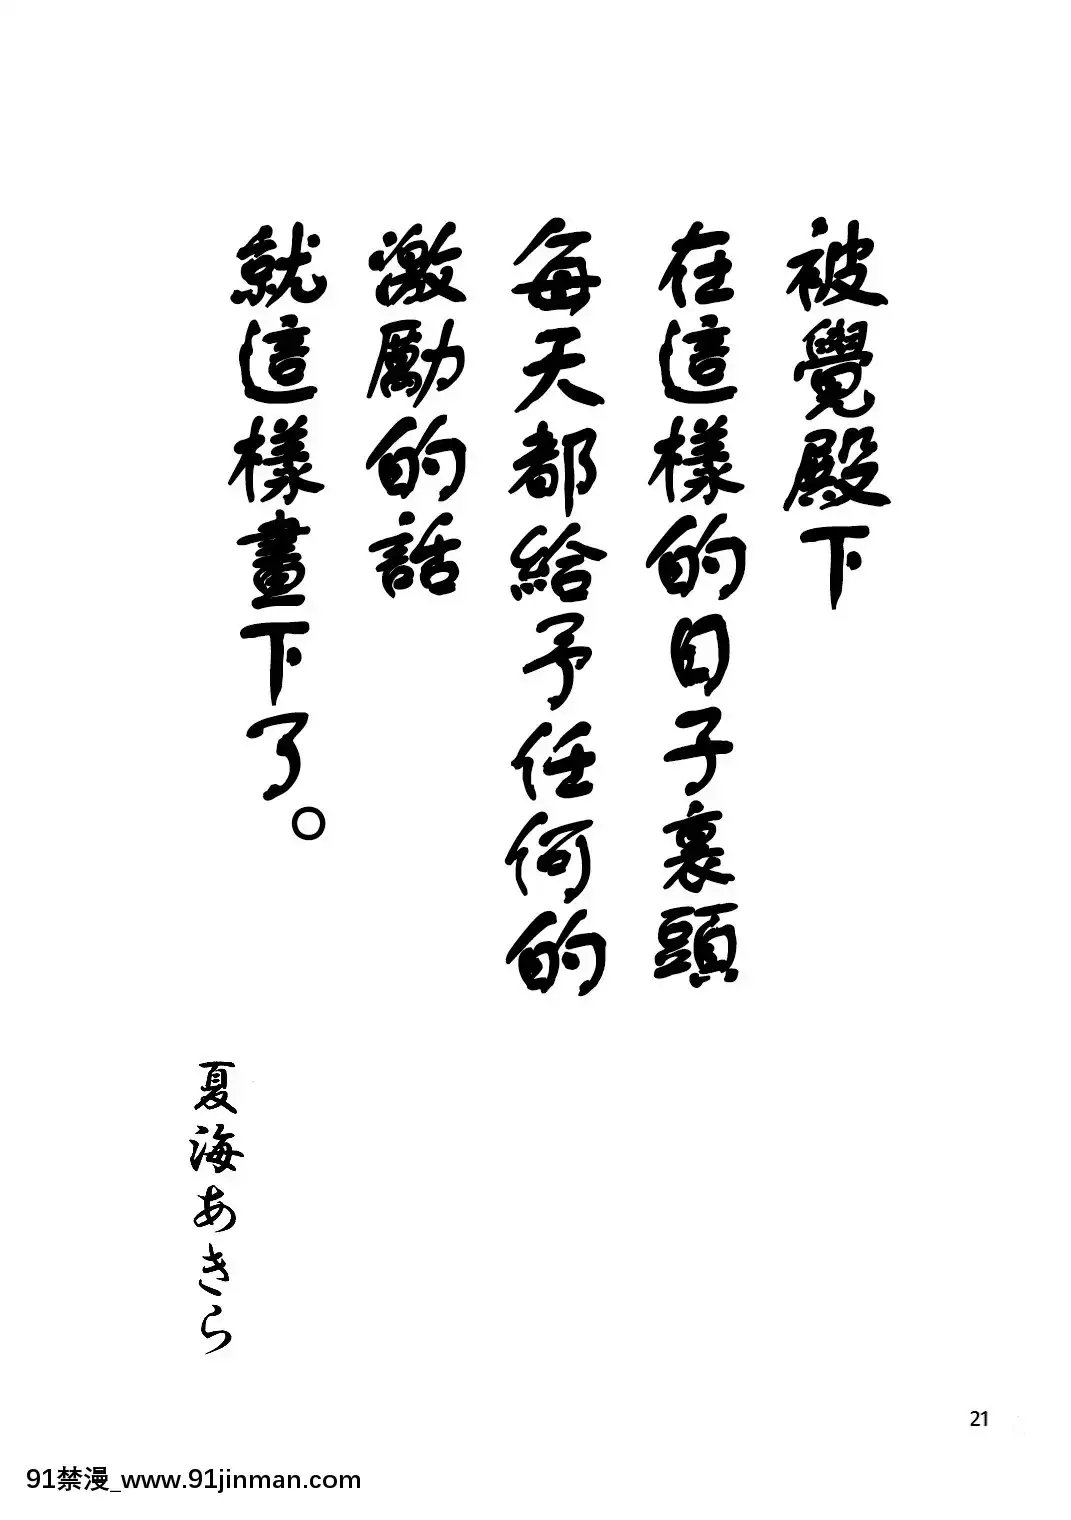 被覺殿下
在這樣的日子裏頭
每天都給予任何的
激勵的話
就這樣畫下了。
夏海あきら
21
91禁漫_www.91jinman.com